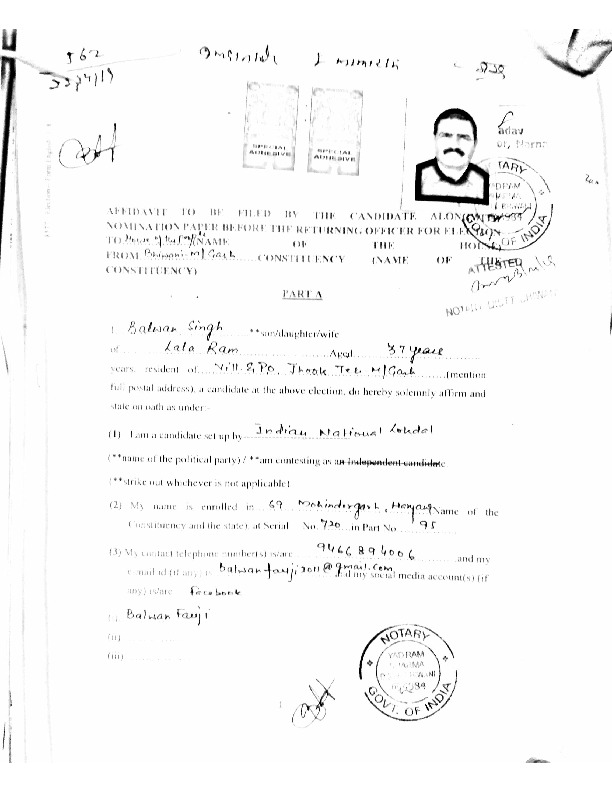 562
SPECIAL ADHESIVE
SPECIAL ADHESIVE
NOTARY
GOVT. OF INDIA
AFFIDAVIT TO BE FILED BY THE CANDIDATE ALONGWITH
NOMINATION PAPER BEFORE THE RETURNING OFFICER FOR ELECTION
TO House of the People (NAME OF THE HOUSE)
FROM Bhiwani-M/Garh CONSTITUENCY (NAME OF THE
CONSTITUENCY)
ATTESTED
PART A
I Balwan Singh **son/daughter/wife
of Lala Ram Aged 37 years
years, resident of Vill. & P.O. Jhook Teh M/Garh (mention
full postal address), a candidate at the above election, do hereby solemnly affirm and
state on oath as under:-
(1) I am a candidate set up by Indian National Lokdal
(**name of the political party) / **am contesting as an Independent candidate.
(**strike out whichever is not applicable)
(2) My name is enrolled in 69 Mohindergarh, Haryana (Name of the
Constituency and the state), at Serial No. 720 in Part No. 95
(3) My contact telephone number(s) is/are 9466894006 and my
e-mail id (if any) is balwanfauji2011@gmail.com and my social media account(s) (if
any) is/are facebook
(i) Balwan Fauji
(ii)
(iii)
NOTARY
GOVT. OF INDIA